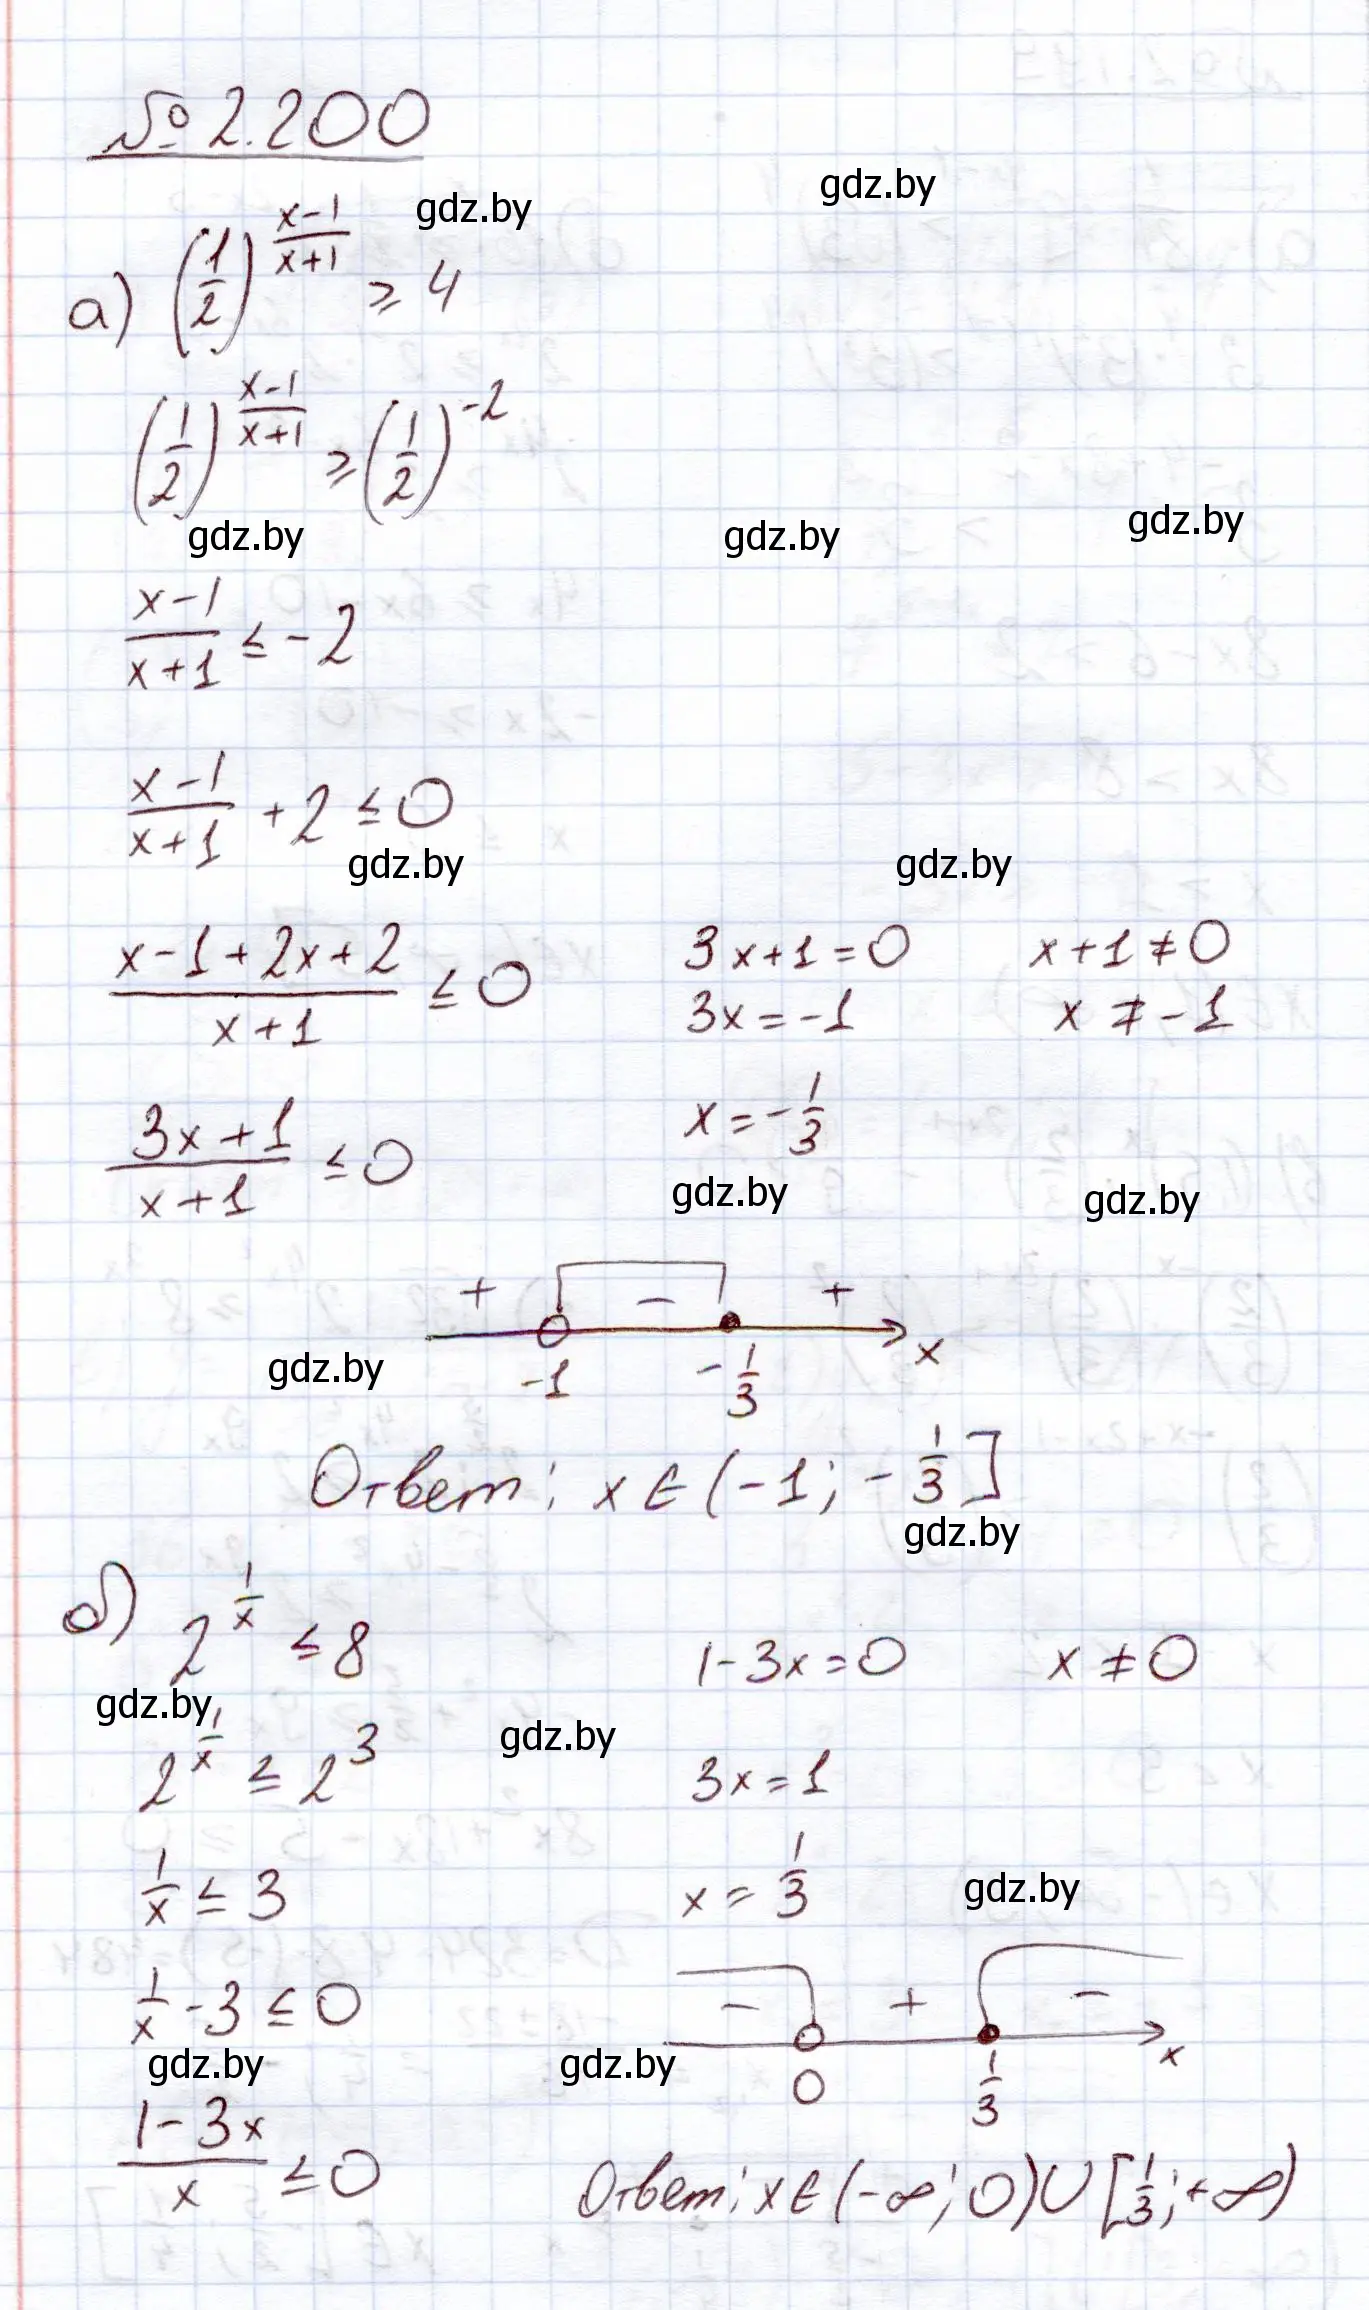 № 2.200
gdz.by
gdz.by
а) (1/2)^((x-1)/(x+1)) ≥ 4
(1/2)^((x-1)/(x+1)) ≥ (1/2)^(-2)
gdz.by
gdz.by
gdz.by
(x-1)/(x+1) ≤ -2
(x-1)/(x+1) + 2 ≤ 0
gdz.by
gdz.by
(x-1+2x+2)/(x+1) ≤ 0
3x+1=0
x+1≠0
3x=-1
x≠-1
(3x+1)/(x+1) ≤ 0
x=-1/3
gdz.by
gdz.by
+ - +
x
gdz.by
-1 -1/3
Ответ: x∈(-1; -1/3]
gdz.by
б) 2^(1/x) ≤ 8
1-3x=0
x≠0
gdz.by
gdz.by
2^(1/x) ≤ 2^3
3x=1
1/x ≤ 3
x=1/3
gdz.by
1/x - 3 ≤ 0
- + -
x
gdz.by
gdz.by
0 1/3
(1-3x)/x ≤ 0
Ответ: x∈(-∞; 0)∪[1/3; +∞)